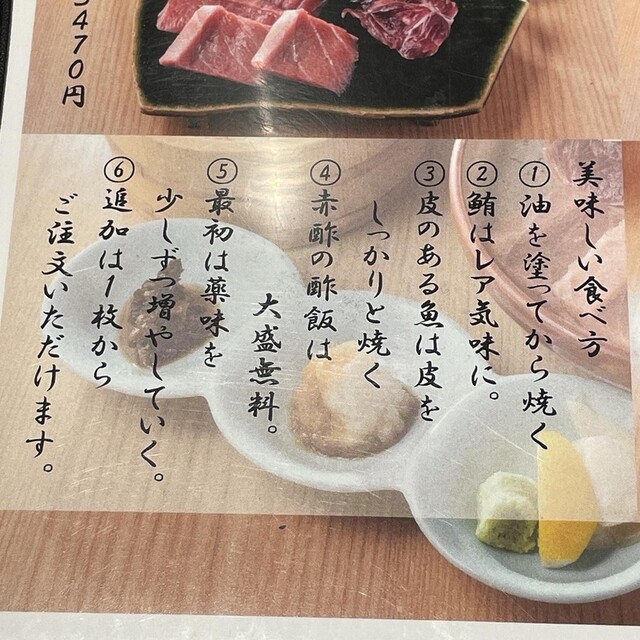 美味しい食べ方
①油を塗ってから焼く
②鮪はレア気味に。
③皮のある魚は皮を
しっかりと焼く
④赤酢の酢飯は
大盛無料。
⑤最初は薬味を
少しずつ増やしていく。
⑥追加は1枚から
ご注文いただけます。
470円